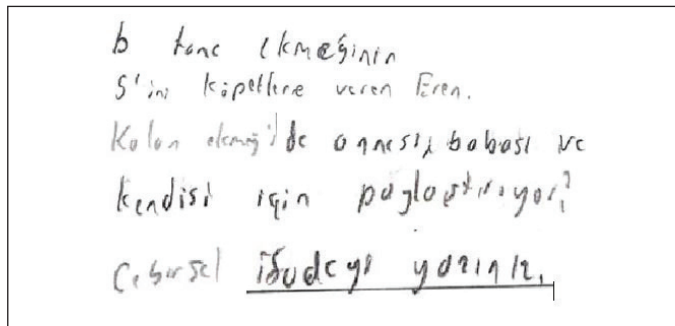 b tane ekmeğinin
5'ini köpeklere veren Eren.
Kalan ekmeği de annesi, babası ve
kendisi için paylaştırıyor?
Cebirsel ifadeyi yazınız.